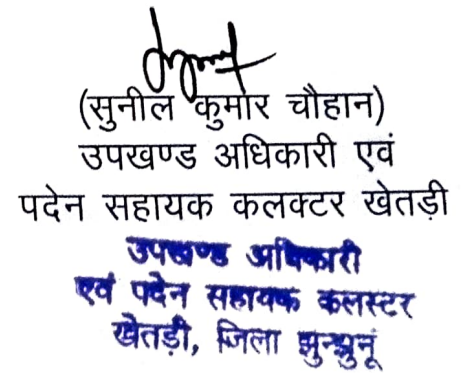 (सुनील कुमार चौहान)
उपखण्ड अधिकारी एवं
पदेन सहायक कलक्टर खेतड़ी
उपखण्ड अधिकारी
एवं पदेन सहायक कलस्टर
खेतड़ी, जिला झुन्झुनूं